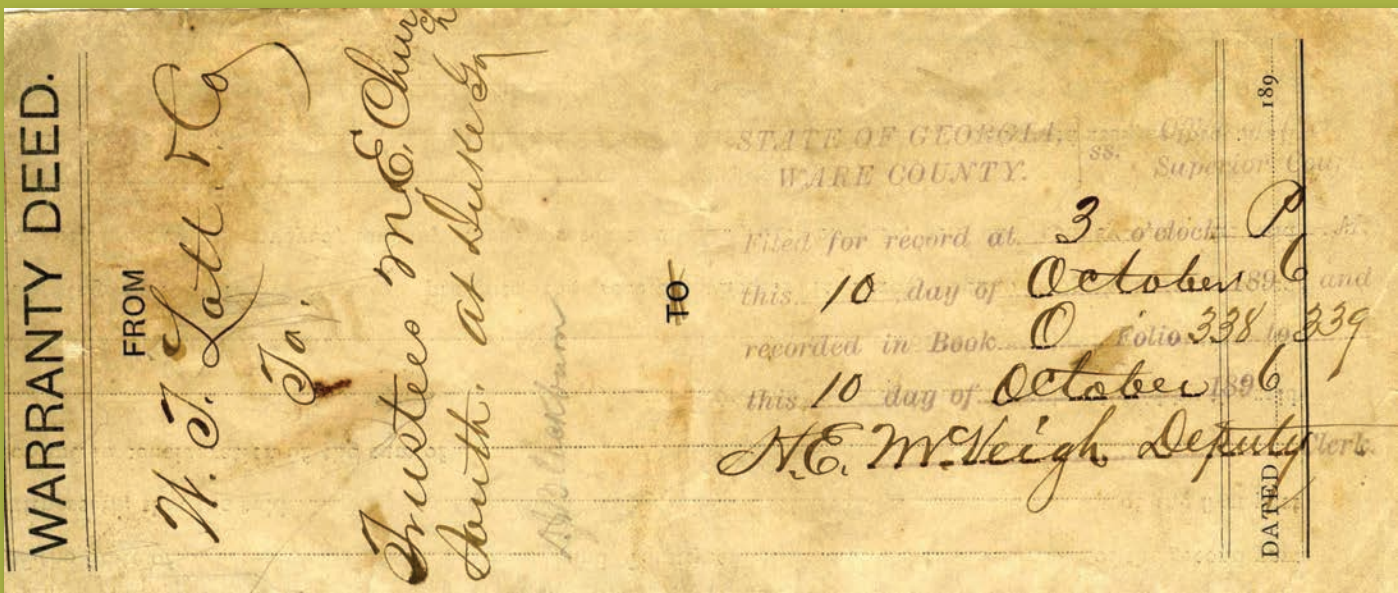 WARRANTY DEED.
FROM
W. T. Lott & Co
To
Trustees M. E. Church
South. at Duke Ga
TO
STATE OF GEORGIA,
WARE COUNTY.
ss.
Superior Cou
Filed for record at 3 o'clock P M.
this 10 day of October 1896 and
recorded in Book O Folio 338 to 339
this 10 day of October 1896
H. E. McVeigh Deputy Clerk.
DATED 189